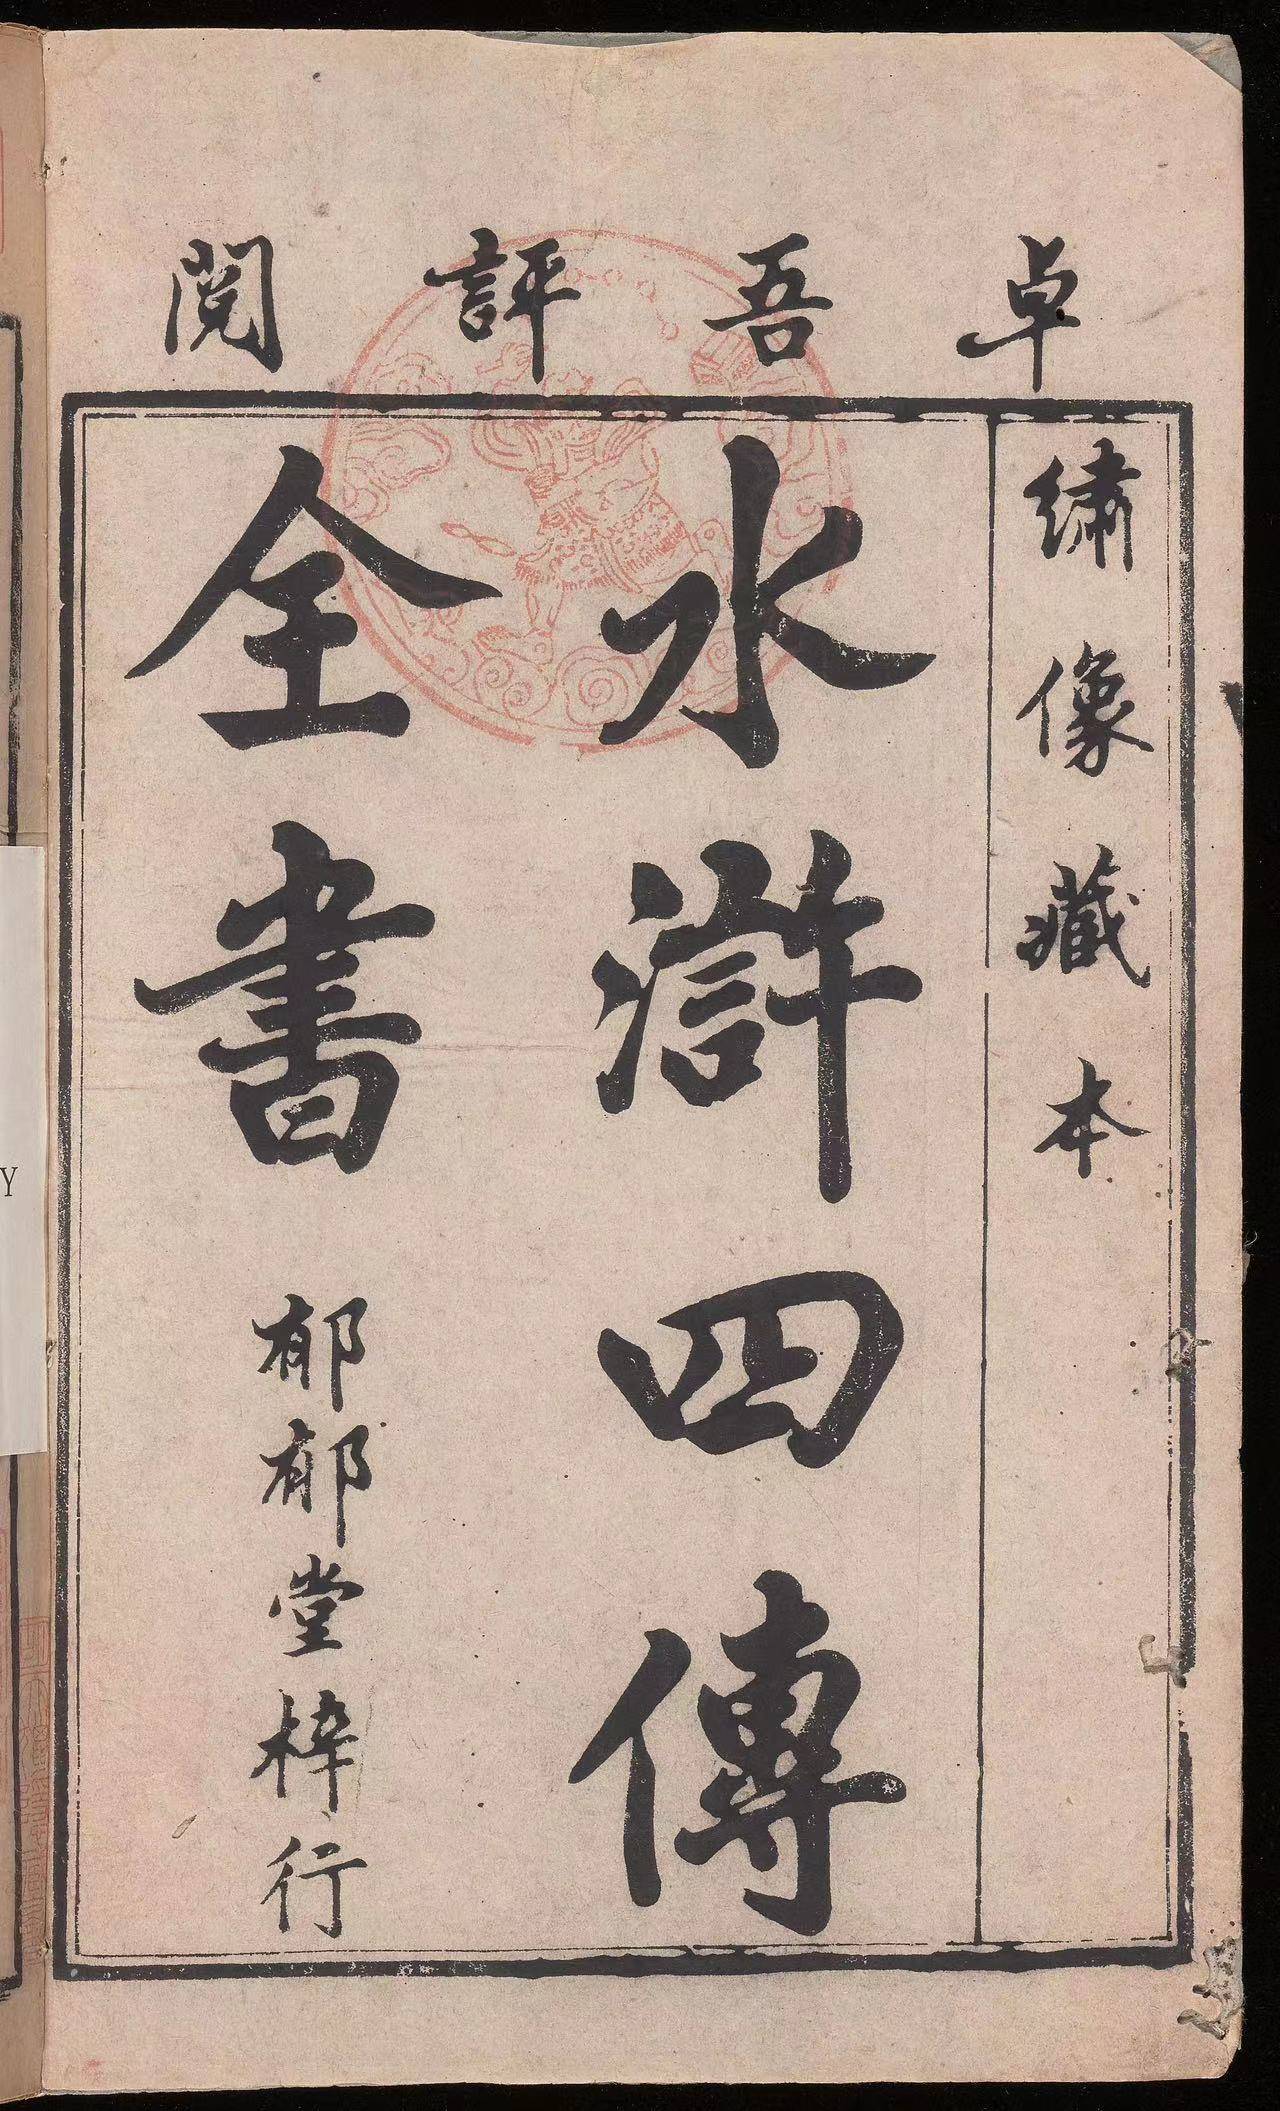 卓吾評閱
繡像藏本
水滸四傳
全書
郁郁堂梓行
Y